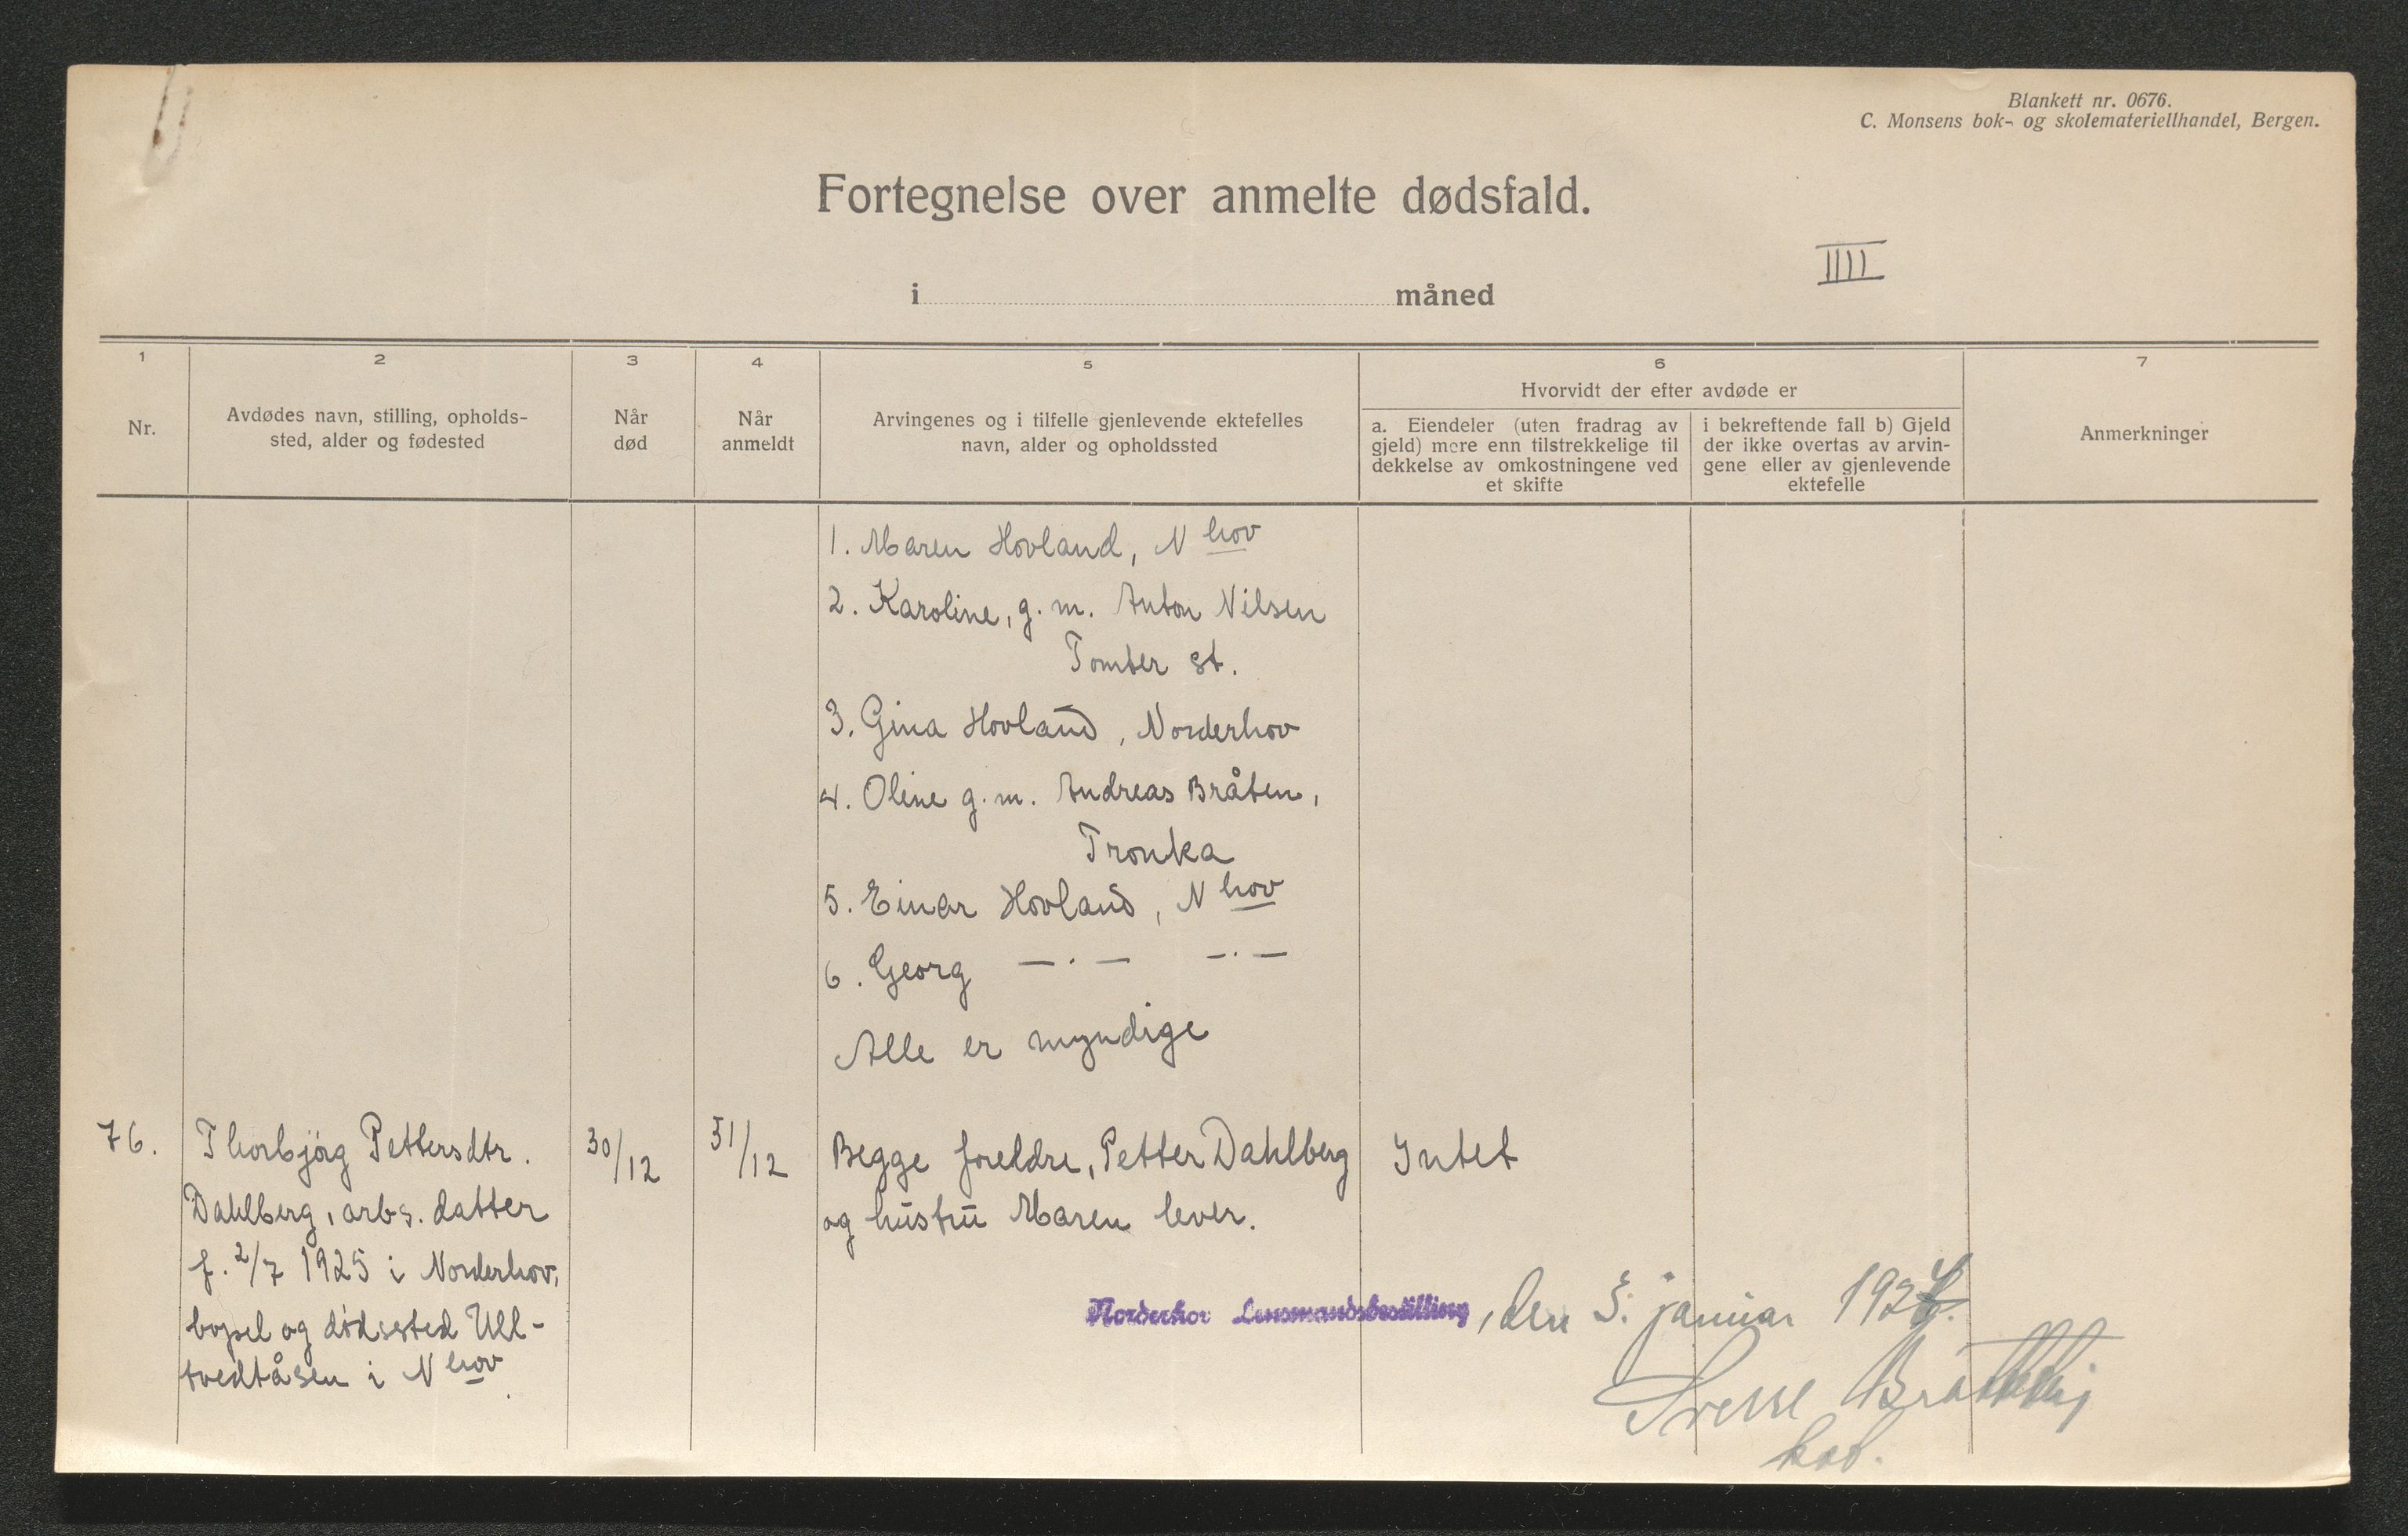 Blankett nr. 0676.
C. Monsens bok- og skolemateriellhandel, Bergen.
Fortegnelse over anmelte dødsfald.
IIII
i måned
1
Nr.
2
Avdødes navn, stilling, opholds-
sted, alder og fødested
3
Når
død
4
Når
anmeldt
5
Arvingenes og i tilfelle gjenlevende ektefelles
navn, alder og opholdssted
6
Hvorvidt der efter avdøde er
a. Eiendeler (uten fradrag av
gjeld) mere enn tilstrekkelige til
dekkelse av omkostningene ved
et skifte
i bekreftende fall b) Gjeld
der ikke overtas av arvin-
gene eller av gjenlevende
ektefelle
7
Anmerkninger
1. Maren Hovland, Nhov
2. Karoline, g. m. Anton Nilsen
Tomter st.
3. Gina Hovland, Norderhov
4. Oline g. m. Andreas Bråten,
Tronka
5. Einar Hovland, Nhov
6. Georg —·— —·—
Alle er myndige
76.
Thorbjørg Pettersdtr.
Dahlberg, arbs. datter
f. 2/7 1925 i Norderhov,
bopel og dødssted Ull-
tvedtåsen i Nhov.
30/12
31/12
Begge foreldre, Petter Dahlberg
og hustru Maren lever.
Intet
Norderhov Lensmandsbestilling, den 5. januar